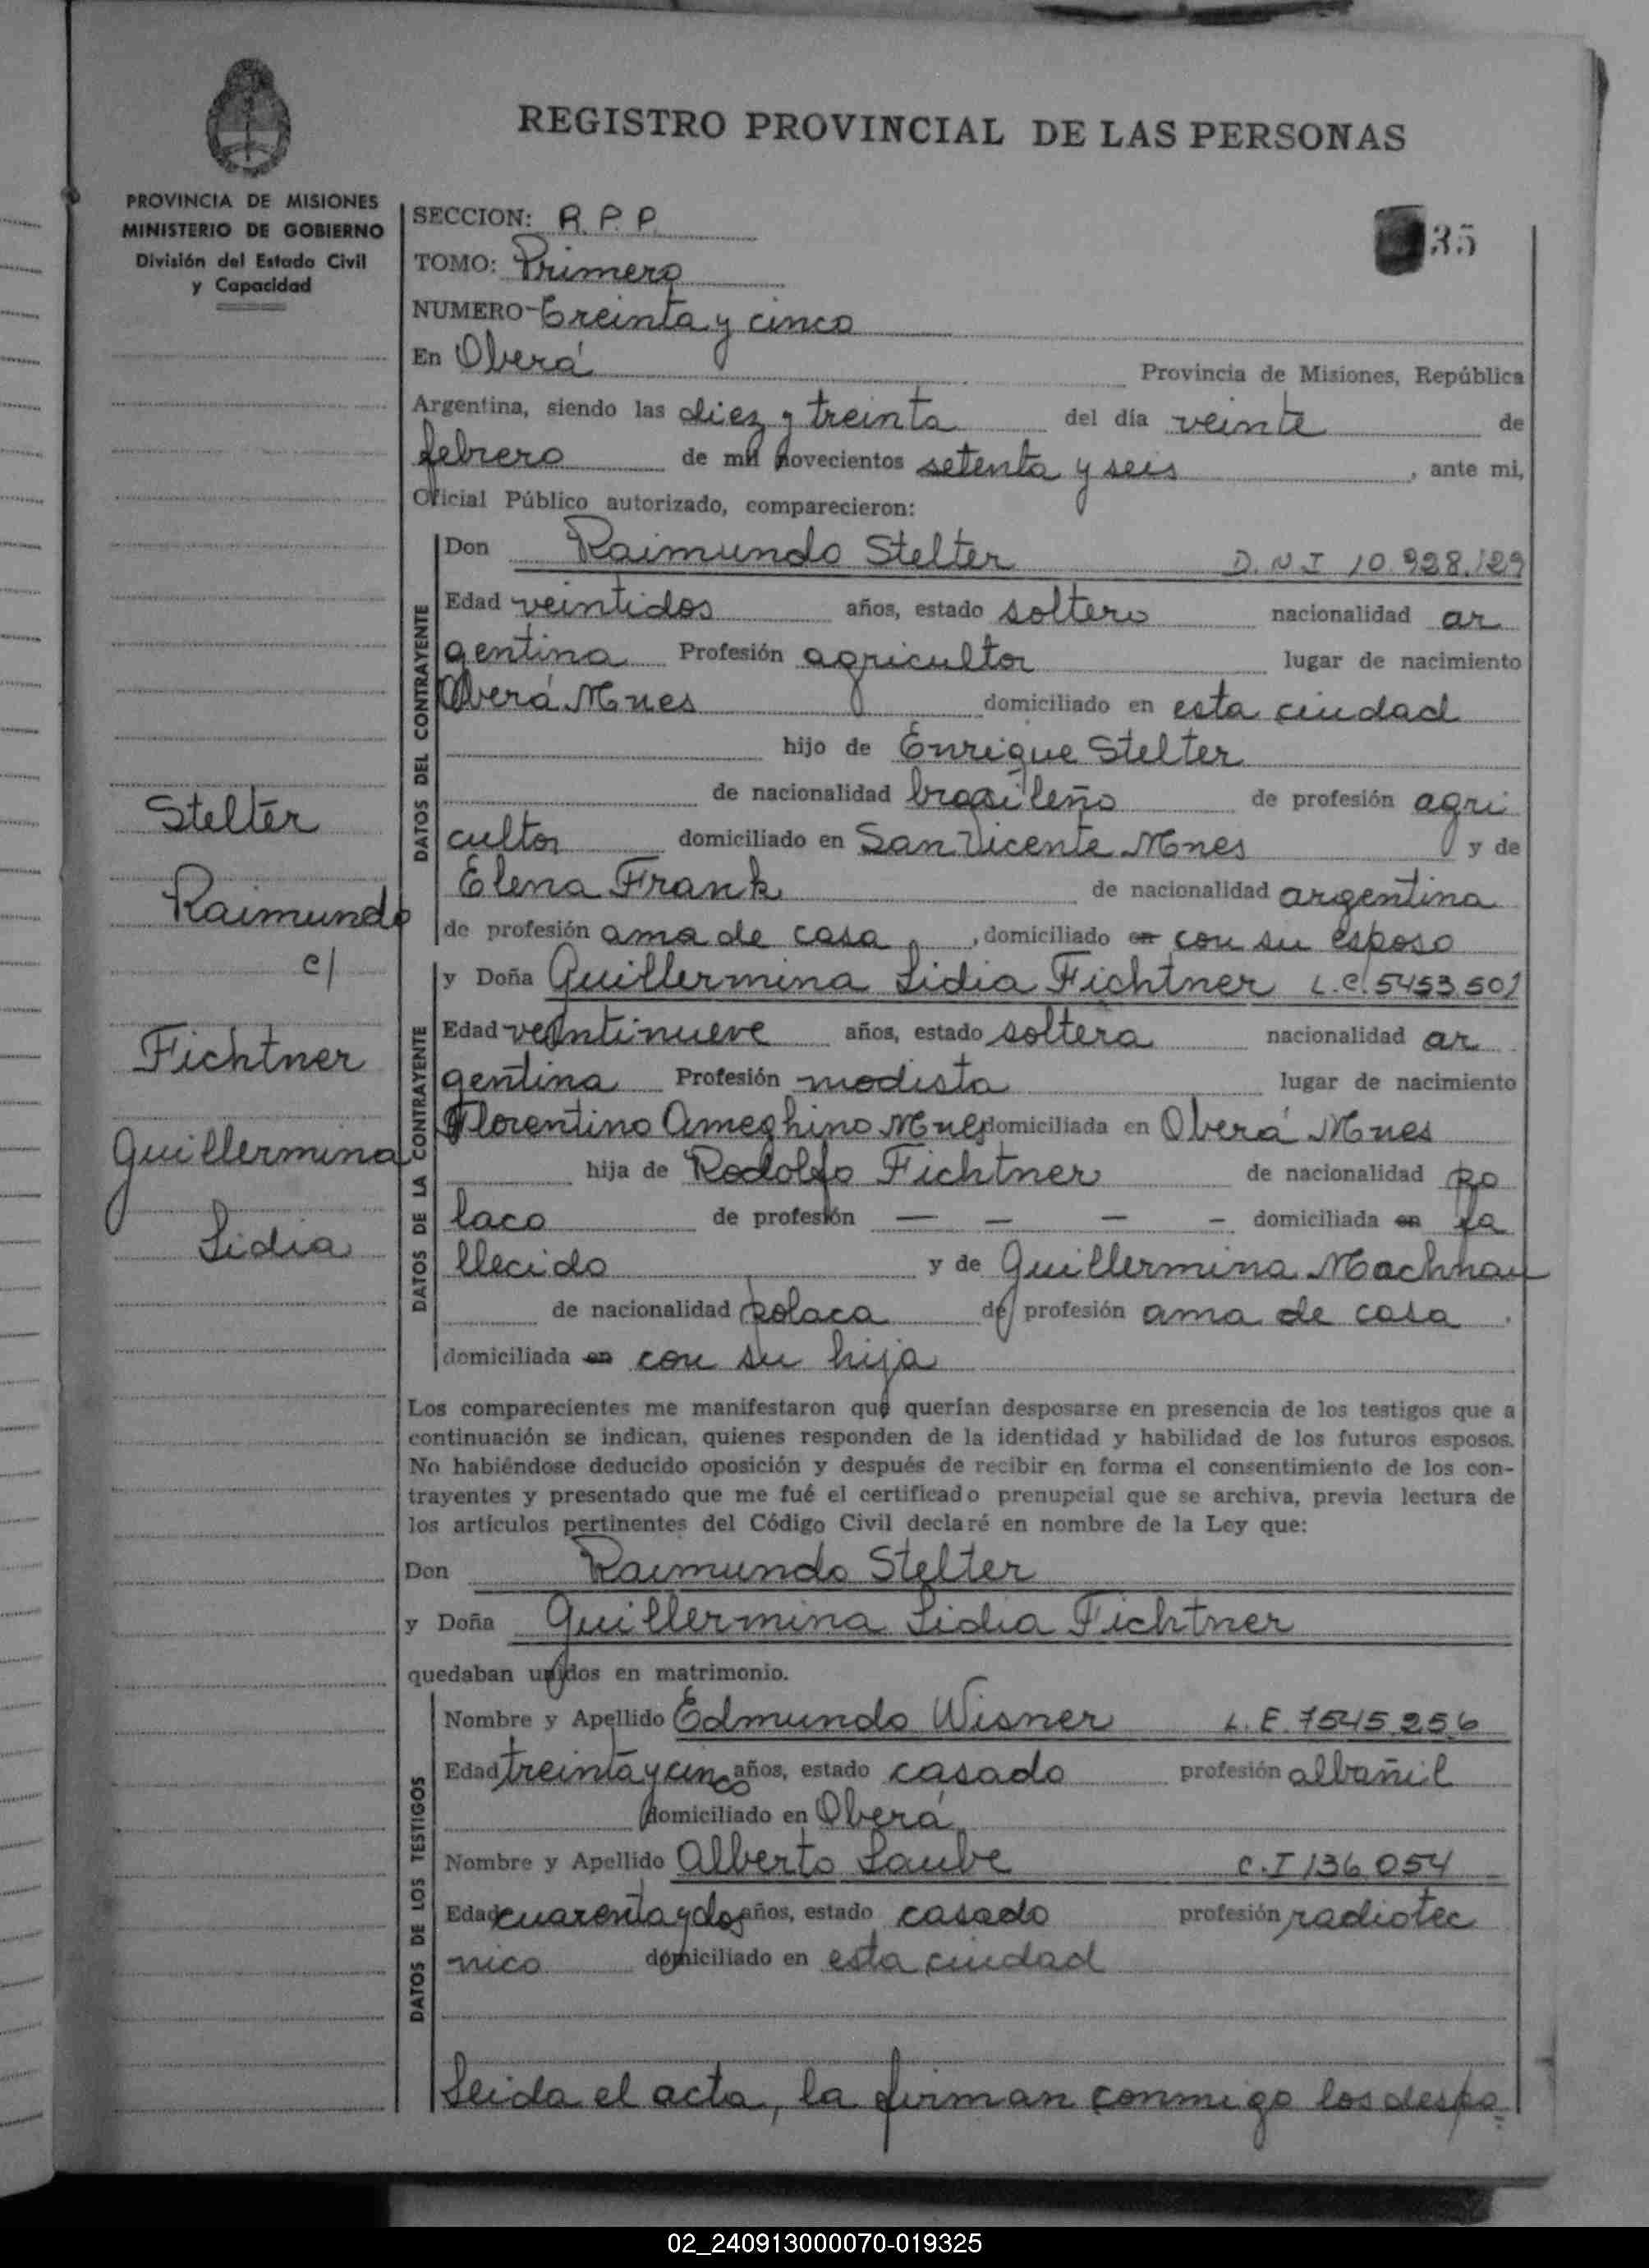 REGISTRO PROVINCIAL DE LAS PERSONAS
PROVINCIA DE MISIONES
MINISTERIO DE GOBIERNO
División del Estado Civil
y Capacidad
35
SECCION: R. P. P.
TOMO: Primero
NUMERO- Treinta y cinco
En Oberá Provincia de Misiones, República
Argentina, siendo las diez y treinta del día veinte de
febrero de mil novecientos setenta y seis, ante mi,
Oficial Público autorizado, comparecieron:
DATOS DEL CONTRAYENTE
Don Raimundo Stelter D.N.I 10.928.129
Edad veintidos años, estado soltero nacionalidad ar
gentina Profesión agricultor lugar de nacimiento
Oberá Mnes domiciliado en esta ciudad
hijo de Enrique Stelter
de nacionalidad brasileño de profesión agri
cultor domiciliado en San Vicente Mnes y de
Elena Frank de nacionalidad argentina
de profesión ama de casa, domiciliado en con su esposo
DATOS DE LA CONTRAYENTE
y Doña Guillermina Lidia Fichtner L.C. 5453.501
Edad veintinueve años, estado soltera nacionalidad ar
gentina Profesión modista lugar de nacimiento
Florentino Ameghino Mnes domiciliada en Oberá Mnes
hija de Rodolfo Fichtner de nacionalidad po
laco de profesión — — — — domiciliada en fa
llecido y de Guillermina Machnau
de nacionalidad polaca de profesión ama de casa.
domiciliada en con su hija
Stelter
Raimundo
c/
Fichtner
Guillermina
Lidia
Los comparecientes me manifestaron que querían desposarse en presencia de los testigos que a
continuación se indican, quienes responden de la identidad y habilidad de los futuros esposos.
No habiéndose deducido oposición y después de recibir en forma el consentimiento de los con-
trayentes y presentado que me fué el certificado prenupcial que se archiva, previa lectura de
los artículos pertinentes del Código Civil declaré en nombre de la Ley que:
Don Raimundo Stelter
y Doña Guillermina Lidia Fichtner
quedaban unidos en matrimonio.
DATOS DE LOS TESTIGOS
Nombre y Apellido Edmundo Wisner L.E. 7545.256
Edad treinta y cinco años, estado casado profesión albañil
domiciliado en Oberá
Nombre y Apellido Alberto Laube C.I 136.054
Edad cuarenta y dos años, estado casado profesión radiotec
nico domiciliado en esta ciudad
Leida el acta, la firman conmigo los despo
02_240913000070-019325